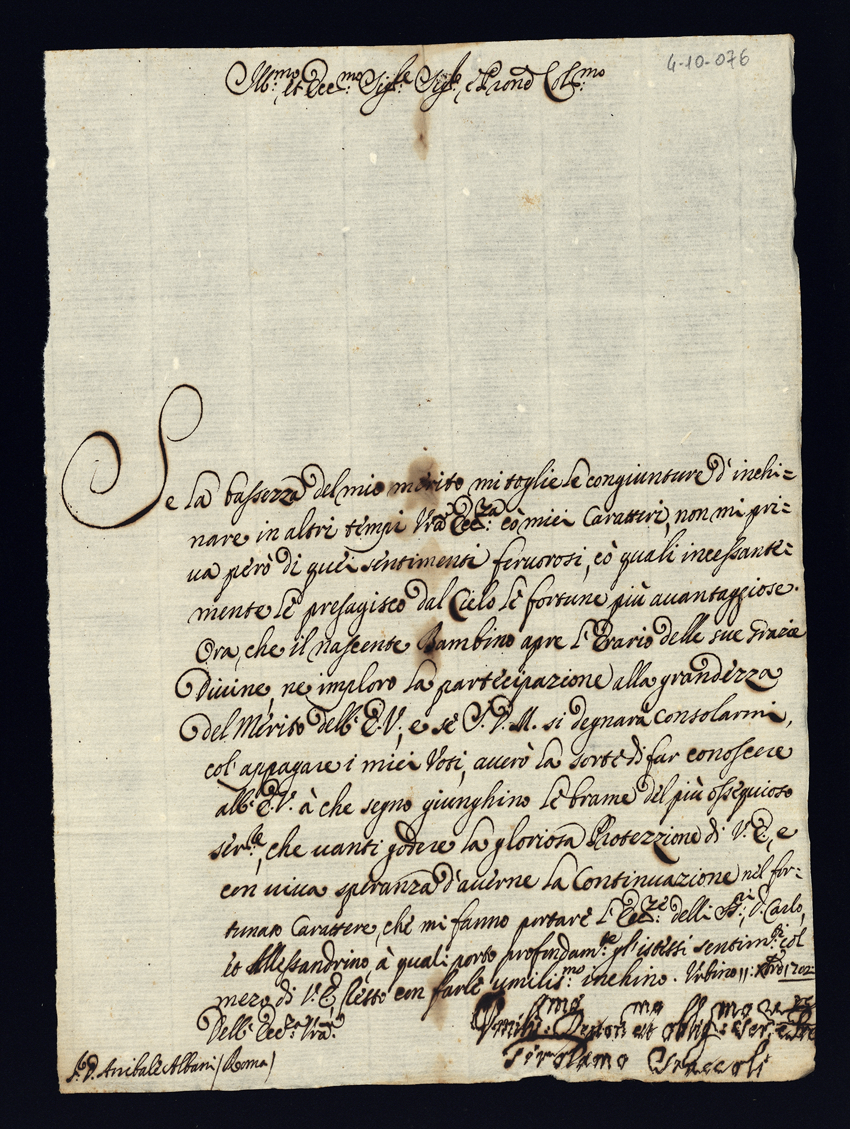 4-10-076
Ill:mo et Ecc:mo Sig:re Sig:re, e Prone Col:mo
Se la bassezza del mio merito mi toglie le congiunture d'inchi=
nare in altri tempi Vra Ecc:za cò miei Caratteri, non mi pri=
va però di quei sentimenti fervorosi, cò quali incessante=
mente le presagisco dal Cielo le fortune più avantaggiose.
Ora, che il nascente Bambino apre l'Erario delle sue Grazie
Divine, ne imploro la partecipazione alla grandezza
del Merito dell'E.V., e se S.D.M. si degnarà consolarmi,
col' appagare i miei Voti, averò la sorte di far conoscere
all'E.V. à che segno giunghino le brame del più ossequioso
ser:re, che vanti godere la gloriosa Protezzione di V.E., e
con viva speranza d'averne la Continuazione nel for=
tunato Carattere, che mi fanno portare l'Ecc:ze delli SS:ri D. Carlo,
et Alessandrino, à quali porto profondam:te gl'istessi sentim:ti col
mezo di V.E., resto con farle umilis:mo inchino. Urbino 11: Xbre 1702
Dell'Ecc:za Vra
Umilis:mo Devot:mo et Oblig:mo Ser:re
Girolamo Staccoli
S:r D. Anibale Albani (Roma)